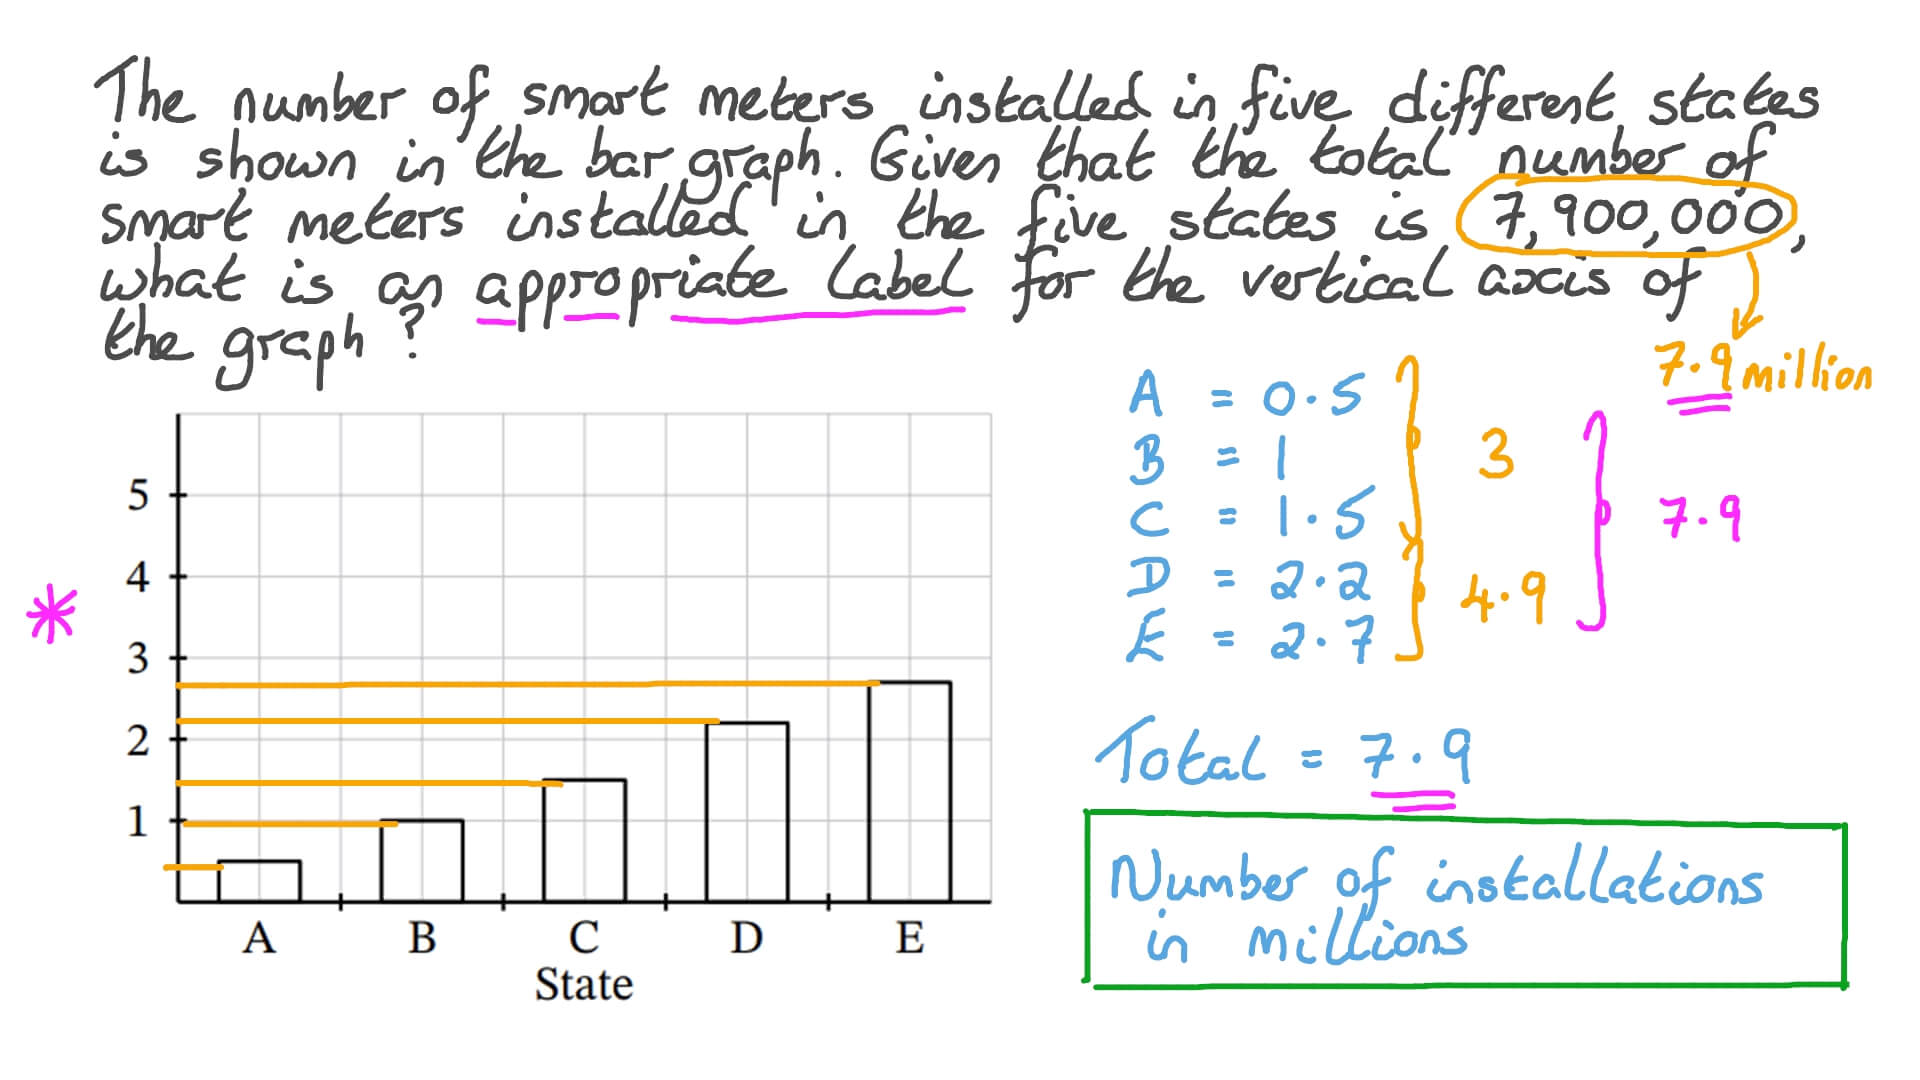 The number of smart meters installed in five different states
is shown in the bar graph. Given that the total number of
smart meters installed in the five states is 7,900,000,
what is an appropriate label for the vertical axis of
the graph?
7.9 million
A = 0.5
B = 1
C = 1.5
D = 2.2
E = 2.7
3
4.9
7.9
5
4
*
3
2
1
A B C D E
State
Total = 7.9
Number of installations
in millions